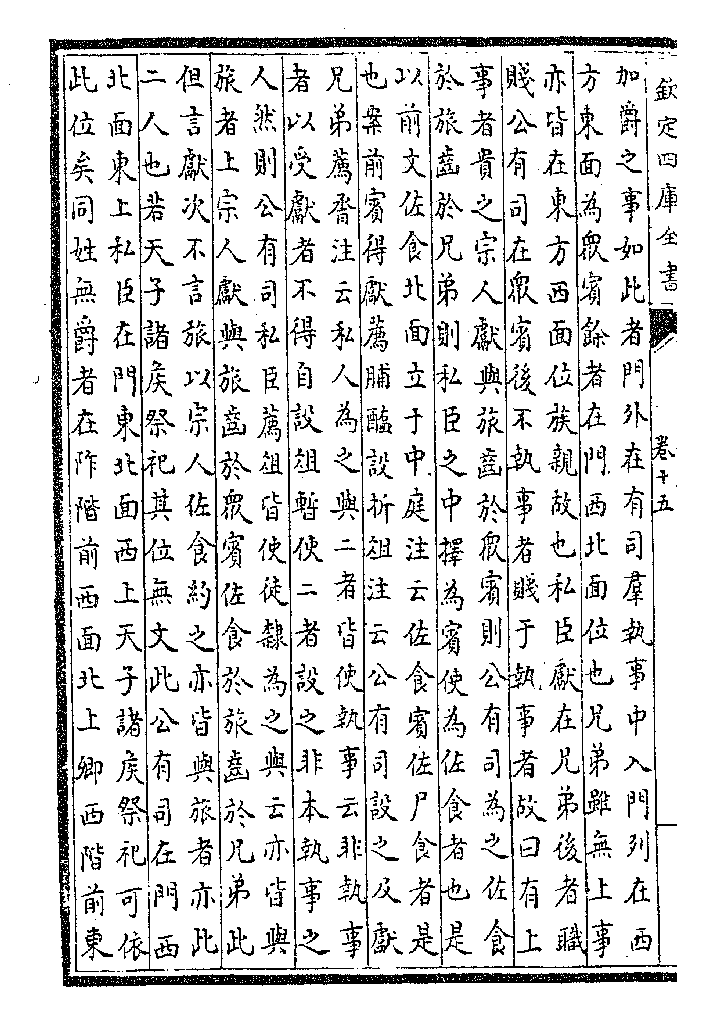 欽定四庫全書
卷十五
加爵之事如此者門外在有司羣執事中入門列在西
方東面為衆賓餘者在門西北面位也兄弟雖無上事
亦皆在東方西面位族親故也私臣獻在兄弟後者職
賤公有司在衆賓後不執事者賤于執事者故曰有上
事者貴之宗人獻與旅齒於衆賓則公有司為之佐食
於旅齒於兄弟則私臣之中擇為賓使為佐食者也是
以前文佐食北面立于中庭注云佐食賓佐尸食者是
也案前賓得獻薦脯醢設折俎注云公有司設之及獻
兄弟薦脀注云私人為之與二者皆使執事云非執事
者以受獻者不得自設俎暫使二者設之非本執事之
人然則公有司私臣薦俎皆使徒隸為之與云亦皆與
旅者上宗人獻與旅齒於衆賓佐食於旅齒於兄弟此
但言獻次不言旅以宗人佐食約之亦皆與旅者亦此
二人也若天子諸侯祭祀其位無文此公有司在門西
北面東上私臣在門東北面西上天子諸侯祭祀可依
此位矣同姓無爵者在阼階前西面北上卿西階前東